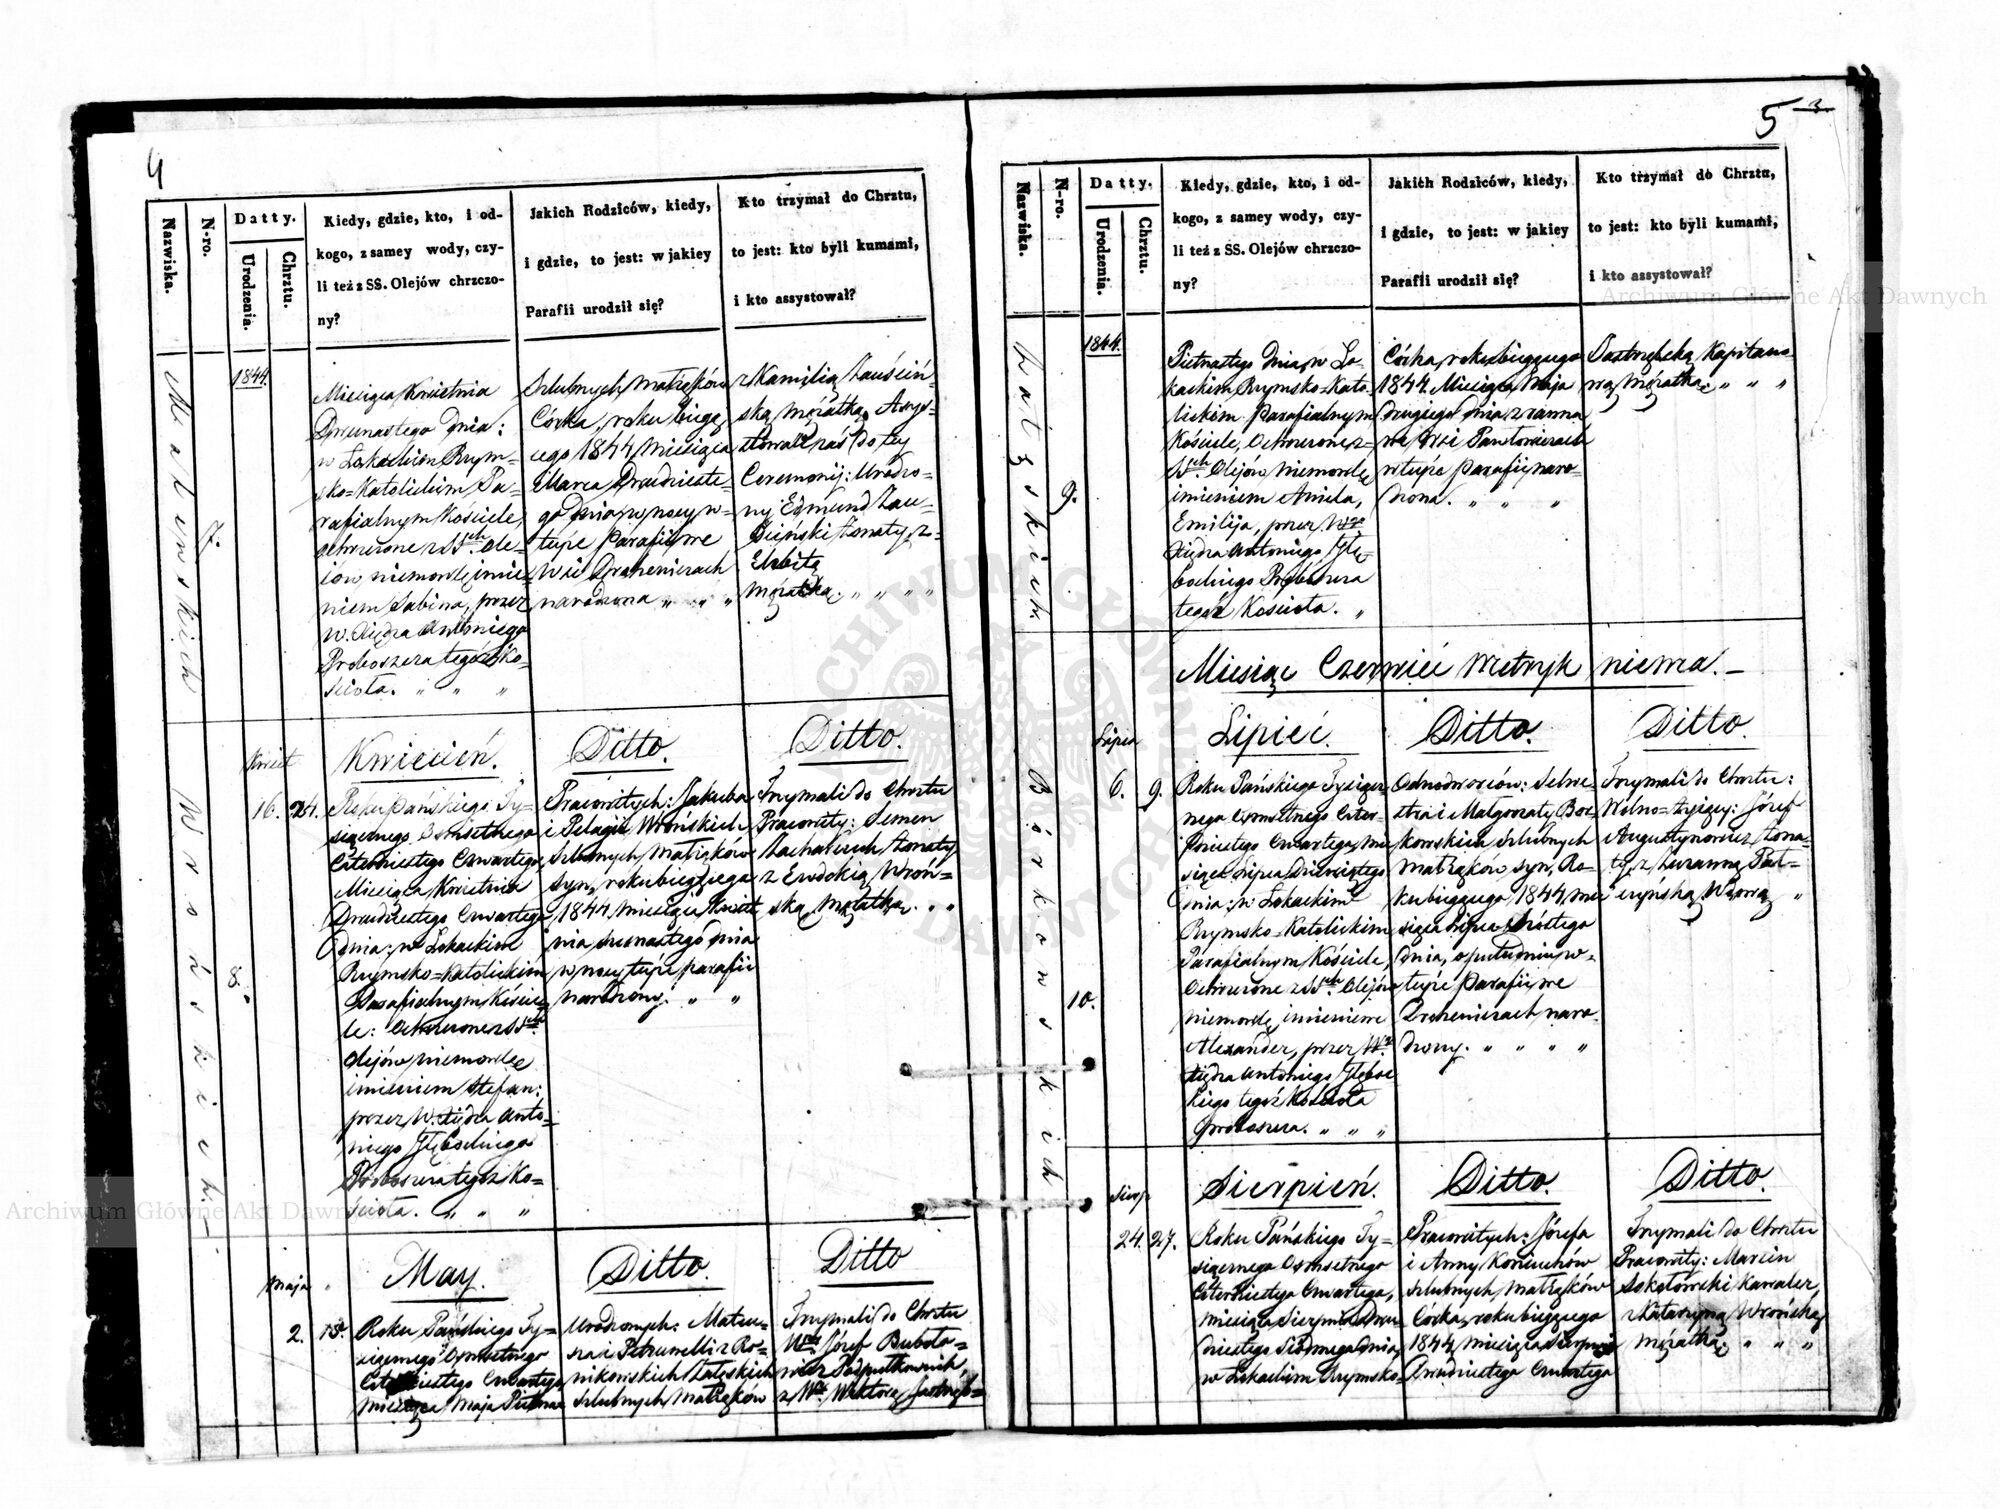 4
Nazwiska.
N-ro.
Datty.
Urodzenia.
Chrztu.
Kiedy, gdzie, kto, i od-
kogo, z samey wody, czy-
li też z SS. Olejów chrzczo-
ny?
Jakich Rodziców, kiedy,
i gdzie, to jest: w jakiey
Parafii urodził się?
Kto trzymał do Chrztu,
to jest: kto byli kumami,
i kto assystował?
1844.
7.
Miesiąca Kwietnia
Dwunastego dnia:
w Łokackim Rzym-
sko-Katolickim Pa-
rafialnym Kościele,
ochrzczone z SSch Ole-
iów, niemowlę imie-
niem Sabina, przez
W. Xiędza Antoniego
Proboszcza tegoż Ko-
ścioła. " " "
Szlubnych Małżąków
Córka, roku bieżą-
cego 1844 Miesiąca
Marca Dwudzieste-
go Dnia, w nocy w-
tuţe Parafii we
Wsi Drazenierach
narodzona " " "
z Kamilią
ską Mężatką. Assys-
stowali zaś do tey
Ceremonij: Urodzo-
ny Edmund
Żonaty, z
Elżbietą
Mężatką. " " " "
Kwiet
16. 24.
8.
Kwiecień.
Roku Pańskiego Ty-
siącznego Osmsetnego
Czterdziestego Czwartego,
Miesiąca Kwietnia
Dwudziestego Czwartego
dnia: w Łokackim
Rzymsko-Katolickim
Parafialnym Koście-
le: Ochrzczone z SSch
Olejów niemowlę
imieniem Stefan:
przez W. Xiędza Anto-
niego Głębockiego
Proboszcza tegoż Ko-
ścioła. " " "
Ditto.
Pracowitych: Jakuba
i Pelagii Wrońskich
Szlubnych Małżąków
Syn, roku bieżącego
1844, miesiąca Kwiet-
nia Szesnastego dnia
w nocy tuţe parafii
narodzony. " "
Ditto.
Trzymali do Chrztu
Pracowity: Semen
Żonaty,
z Ewdokią Wroń-
ską, Mężatką. " "
Maja
2. 15.
May.
Roku Pańskiego Ty-
siącznego Osmsetnego
Czterdziestego Czwartego,
Miesiąca Maja Pietna-
Ditto.
Urodzonych: Mateu-
sza i Petrunelli z Ro-
nikowskich Załęskich
Szlubnych Małżąków
Ditto
Trzymali do Chrztu
Józef
Podpułkownik,
z Wiktorą Jastrzęb-
5
Nazwiska.
N-ro.
Datty.
Urodzenia.
Chrztu.
Kiedy, gdzie, kto, i od-
kogo, z samey wody, czy-
li też z SS. Olejów chrzczo-
ny?
Jakich Rodziców, kiedy,
i gdzie, to jest: w jakiey
Parafii urodził się?
Kto trzymał do Chrztu,
to jest: kto byli kumami,
i kto assystował?
Załęskich
1844.
9.
Pietnastego Dnia, w Ło-
kackim Rzymsko-Kato-
lickim Parafialnym
Kościele, Ochrzczone z-
SSch Olejów Niemowlę
imieniem Aniela,
Emilija, przez Wgo
Xiędza Antoniego Głę-
bockiego Proboszcza
tegoż Kościoła. "
Córka, roku bieżącego
1844 Miesiąca Maja
drugiego dnia z ranna
we Wsi Pawłowiczach
w tuţe Parafii naro-
dzona. " " "
Jastrzębską Kapitano-
wą Mężatką. " " "
Miesiąc Czerwiec Metryk niema. —
Borkowskich
Lipca
6. 9.
10.
Lipiec.
Roku Pańskiego Tysiącz-
nego Osmsetnego Czter-
dziestego Czwartego, mie-
siąca Lipca Dziewiątego
dnia: w Łokackim
Rzymsko-Katolickim
Parafialnym Kościele,
Ochrzczone z SSch Olejów
niemowlę, imieniem
Alexander, przez Wgo
Xiędza Antoniego Głęboc-
kiego tegoż Kościoła
Proboszcza. " " "
Ditto.
Odnodworców: Selwe-
stra i Małgorzaty Bor-
kowskich Szlubnych
Małżąków syn, Ro-
ku bieżącego 1844, mie-
siąca Lipca Szóstego
dnia, o południu, w-
tuţe Parafii, we
Drazenierach naro-
dzony. " " " "
Ditto.
Trzymali do Chrztu:
Wolno-żyjący: Józef
Augustynowicz Żona-
ty, z Zuzanną
Wdową. "
Sierp
24. 27.
Sierpień.
Roku Pańskiego Ty-
siącznego Osmsetnego
Czterdziestego Czwartego,
miesiąca Sierpnia Dwu-
dziestego Siódmego dnia,
w Łokackim Rzymsko-
Ditto.
Pracowitych: Józefa
i Anny
Szlubnych, Małżąków
Córka, roku bieżącego
1844 miesiąca Sierpnia
Dwudziestego Czwartego
Ditto.
Trzymali do Chrztu
Pracowity: Marcin
Sokołowski Kawaler,
z Katarzyną Wrońską
Mężatką. " " "
Archiwum Główne Akt Dawnych
Archiwum Główne Akt Dawnych
ARCHIWUM GŁÓWNE AKT DAWNYCH